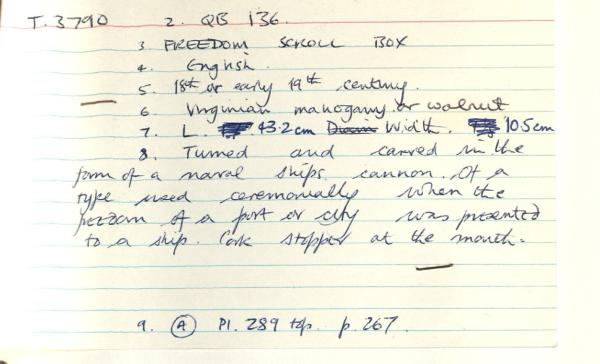 T.3790 2. QB 136.
3 FREEDOM SCROLL BOX
4. English.
5. 18th or early 19th century.
6. Virginian mahogany or walnut
7. L. 43.2cm Width. 10.5cm
8. Turned and carved in the
form of a naval ships cannon. Of a
type used ceremonially when the
freedom of a port or city was presented
to a ship. Cork stopper at the mouth.
9. A Pl. 289 top. p. 267.